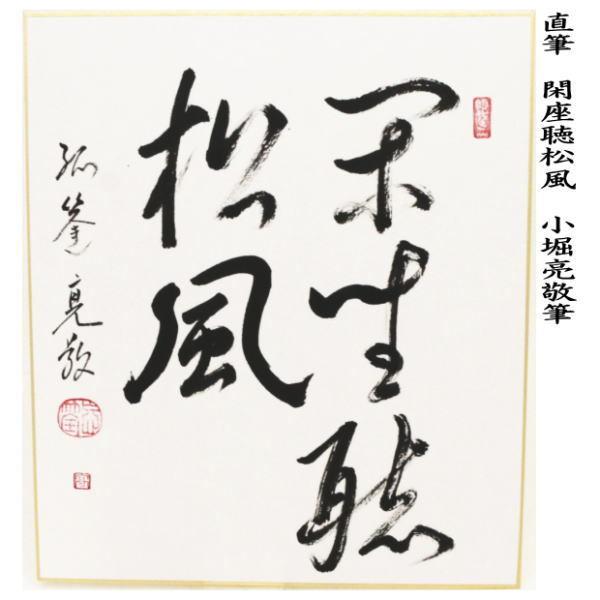 直筆　閑座聴松風　小堀亮敬筆
閑坐聴
松風
孤篷亮敬